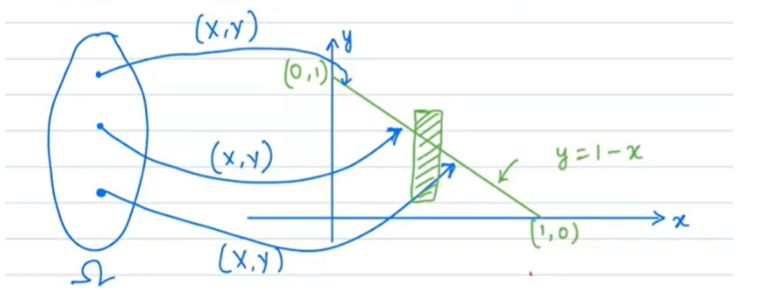 (X,Y)
y
(0,1)
(X,Y)
y=1-x
x
(1,0)
(X,Y)
Ω